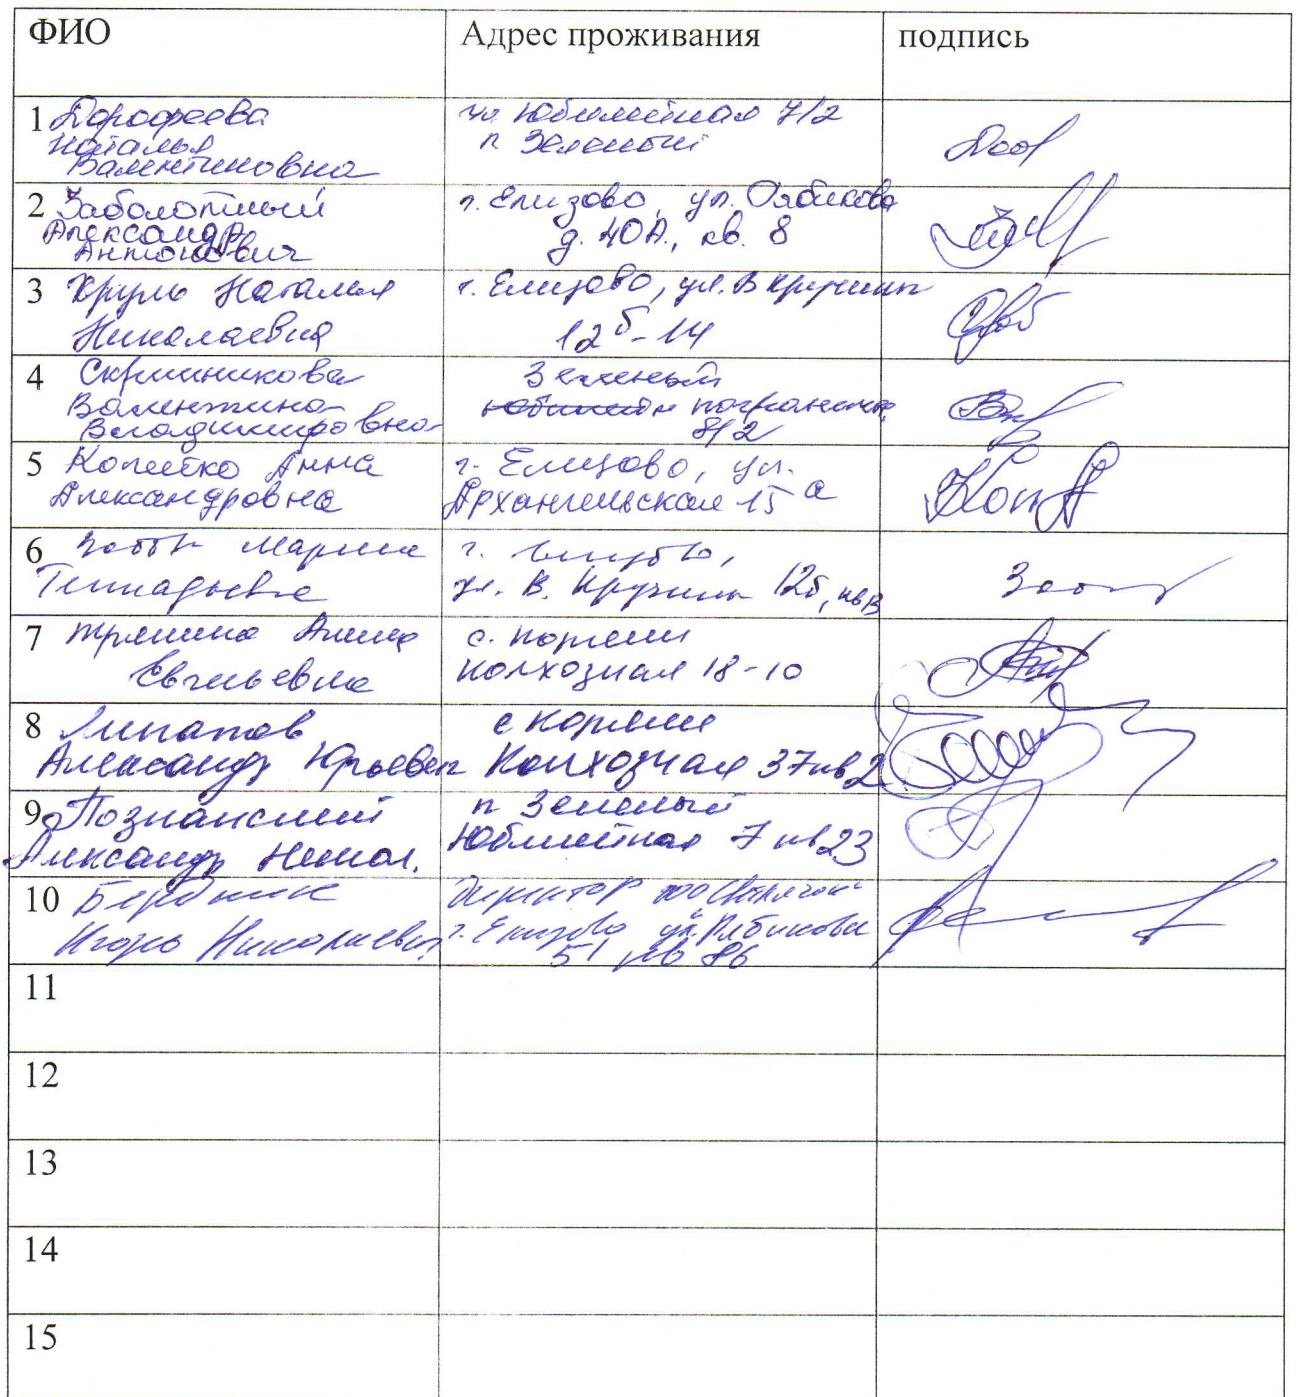 ФИО
Адрес проживания
подпись
1 Дорофеева
Наталья
Валентиновна
ул Юбилейная 7/2
п Зеленый
2 Заболотный
Александр
Антонович
г. Елизово, ул.
д. 40А, кв. 8
3 Круль Наталья
Николаевна
г. Елизово, ул. В Кручины
12б-14
4
Валентина
Владимировна
Зеленый
8/2
5 Копейко Анна
Александровна
г. Елизово, ул.
Архангельская 15 а
6 Марина
Геннадьевна
г. Елизово,
ул. В. Кручины 12б,
7
Евгеньевна
с. Коряки
Колхозная 18-10
8 Липатов
Александр Юрьевич
с Коряки
Колхозная 37 кв 2
9 Познанский
Александр Никол.
п Зеленый
Юбилейная 7 кв 23
10 Бердник
Игорь Николаевич
Директор ООО
г. Елизово ул. Рябикова
51 кв 86
11
12
13
14
15